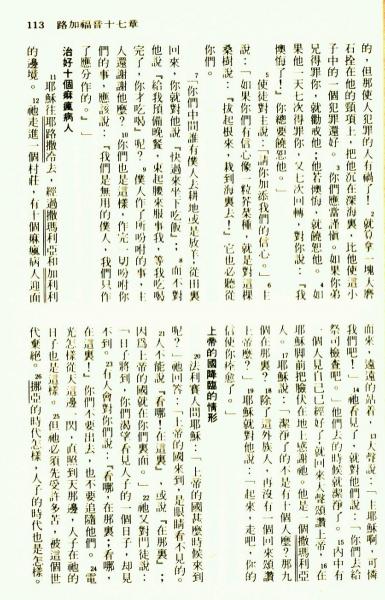 113 路加福音十七章
的，但那使人犯罪的人有禍了！2就算拿一塊大磨
石拴在他的頸項上，把他沉在深海裏，比他使這小
子中的一個犯罪還好。3你們應當謹慎。如果你弟
兄得罪你，就勸戒他；他若懊悔，就饒恕他。4如
果他一天七次得罪你，又七次回轉，對你說：『我
懊悔了！』你總要饒恕他。」
5使徒對主說：「請你加添我們的信心。」6主
說：「如果你們有信心像一粒芥菜種，就是對這棵
桑樹說：『拔起根來，栽到海裏去！』它也必聽從
你們。
7「你們中間誰有僕人去耕地或是放羊，從田裏
回來，你就對他說『快過來坐下吃飯』；8而不對
他說『給我預備晚餐，束起腰來服事我，等我吃喝
完了，你才吃喝』呢？9僕人作了所吩咐的事，主
人還謝謝他麼？10你們也是這樣，作完一切吩咐你
們的事，應該說：『我們是無用的僕人，我們只作
了應分作的。』」
治好十個痲瘋病人
11耶穌往耶路撒冷去，經過撒瑪利亞和加利利
的邊境。12祂走進一個村莊，有十個痲瘋病人迎面
而來，遠遠的站着，13大聲說：「主耶穌啊，可憐
我們吧！」14祂看見了，就對他們說：「你們去給
祭司檢查吧。」他們去的時候就潔淨了。15內中有
一個人見自己已經好了，就回來大聲頌讚上帝，16在
耶穌脚前把臉伏在地上感謝祂。他是一個撒瑪利亞
人。17耶穌說：「潔淨了的不是有十個人麼？那九
個在那裏？18除了這外族人，再沒有一個回來頌讚
上帝麼？」19耶穌就對他說：「起來，走吧，你的
信使你痊愈了。」
上帝的國降臨的情形
20法利賽人問耶穌：「上帝的國甚麼時候來到
呢？」祂回答：「上帝的國來到，是眼睛看不見的。
21人不能說『看哪！在這裏』或說『在那裏』；
因爲上帝的國就在你們裏面。」22祂又對門徒說：
「日子將到，你們渴望看見人子的一個日子，却見
不到。23有人會對你們說：『看哪，在那裏；看哪，
在這裏！』你們不要出去，也不要追隨他們。24電
光怎樣從天這邊一閃，直照到天那邊，人子在祂的
日子也是這樣。25但祂必須先受許多苦，被這個世
代棄絕。26挪亞的時代怎樣，人子的時代也是怎樣。